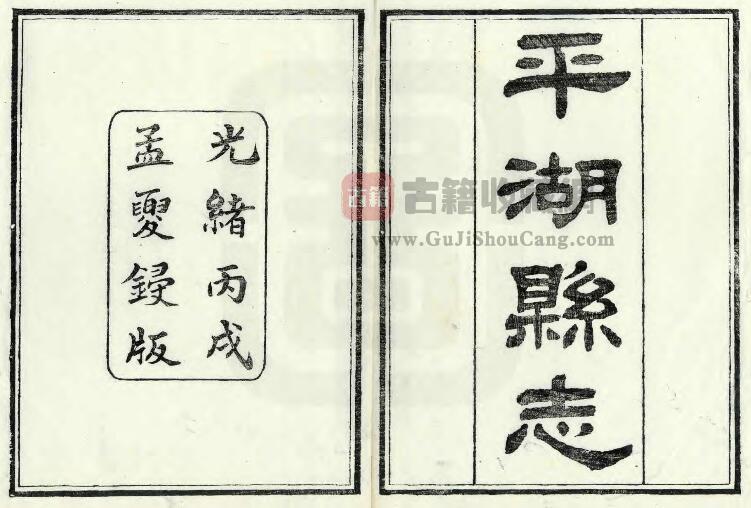 平湖縣志
光緒丙戌
孟夏鋟版
古籍 古籍收
www.GuJiShouCang.com